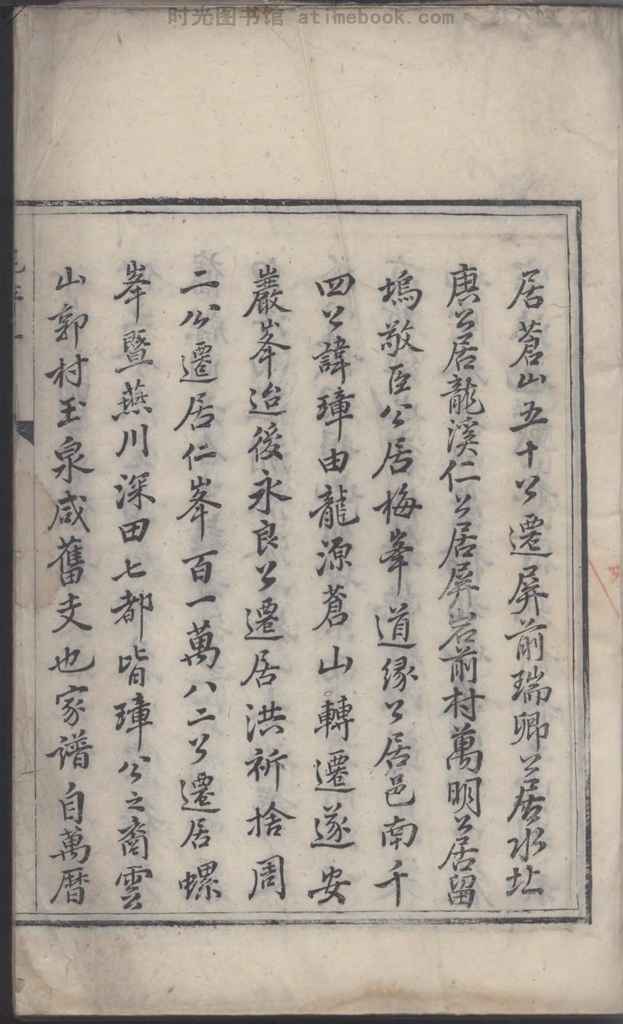 时光图书馆 atimebook.com
居蒼山五十公遷屏前瑞卿公居水址
庚公居龍溪仁公居屏岩前村萬明公居留
塢敬臣公居梅峯道緣公居邑南千
四公諱璋由龍源蒼山轉遷遂安
巖峯迨後永良公遷居洪祈捨周
二公遷居仁峯百一萬八二公遷居螺
峯暨燕川深田七都皆璋公之裔雲
山郭村玉泉咸舊支也家譜自萬曆